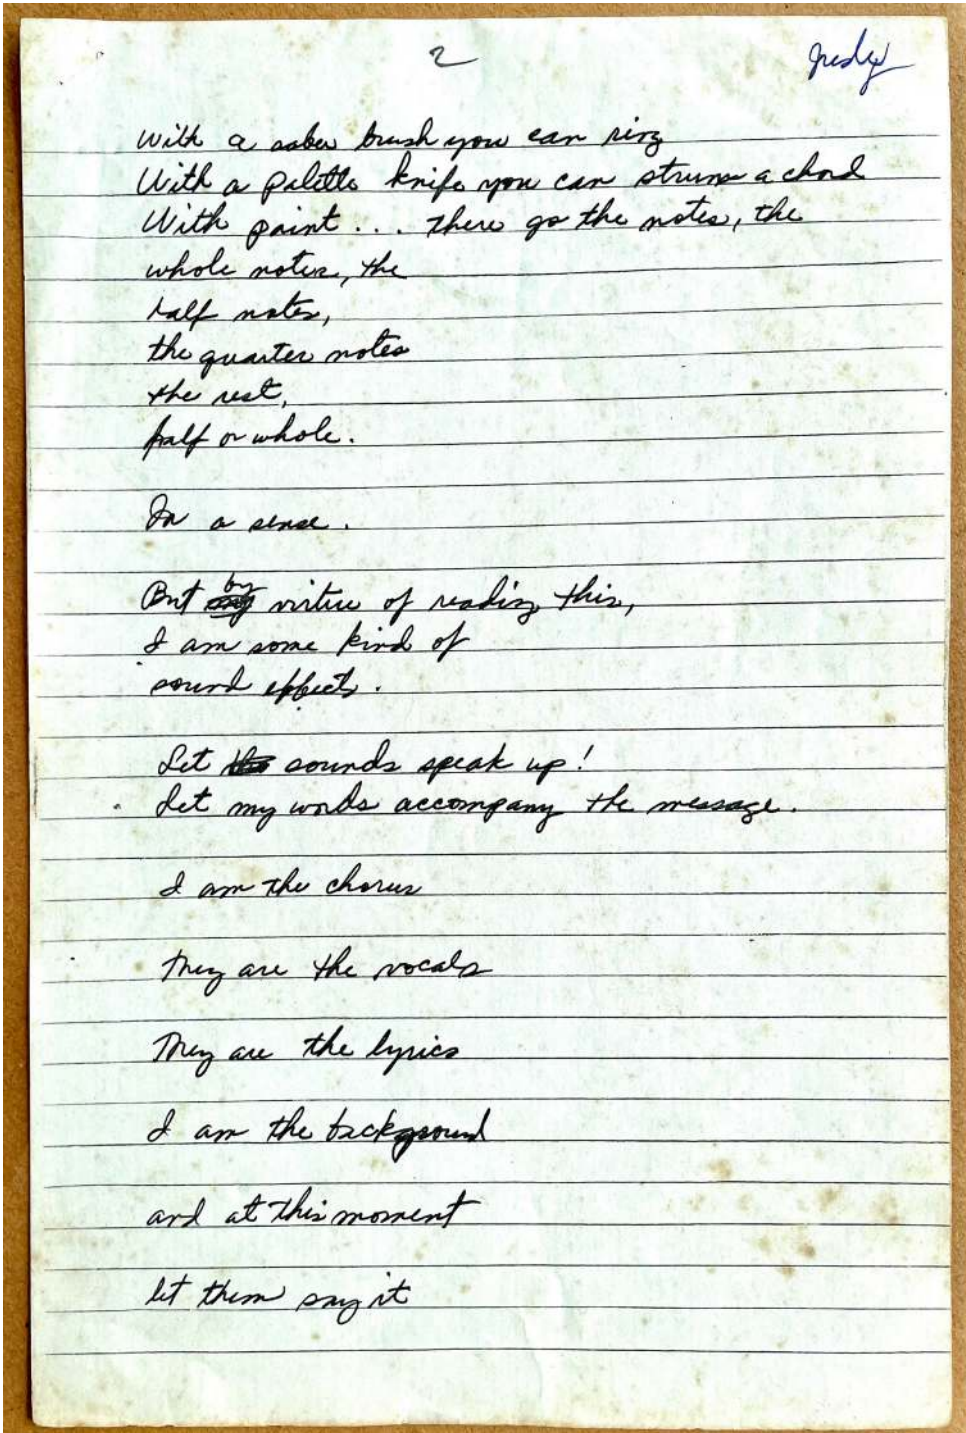 2
Judy
With a saber brush you can ring
With a palette knife you can strum a chord
With paint... there go the notes, the
whole notes, the
half notes,
the quarter notes
the rest,
half or whole.
In a sense.
But by virtue of reading this,
I am some kind of
sound effects.
Let sounds speak up!
Let my words accompany the message.
I am the chorus
They are the vocals
They are the lyrics
I am the background
and at this moment
let them say it